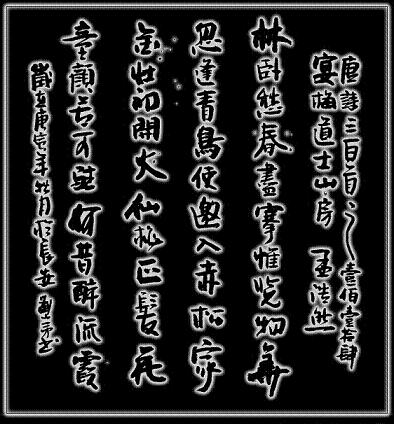 唐詩三百首之 壹佰壹拾肆
宴梅道士山房 孟浩然
林卧愁春盡搴帷览物華
忽逢青鳥使邀入赤松家
金灶初開火仙桃正髮花
童顔若可駐何昔醉流霞
歲在庚寅年 月於長安